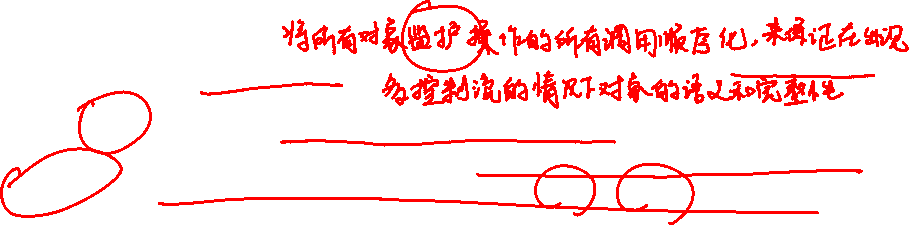 将所有对象监护操作的所有调用顺序化，来保证在出现
多控制流的情况下对象的语义和完整性